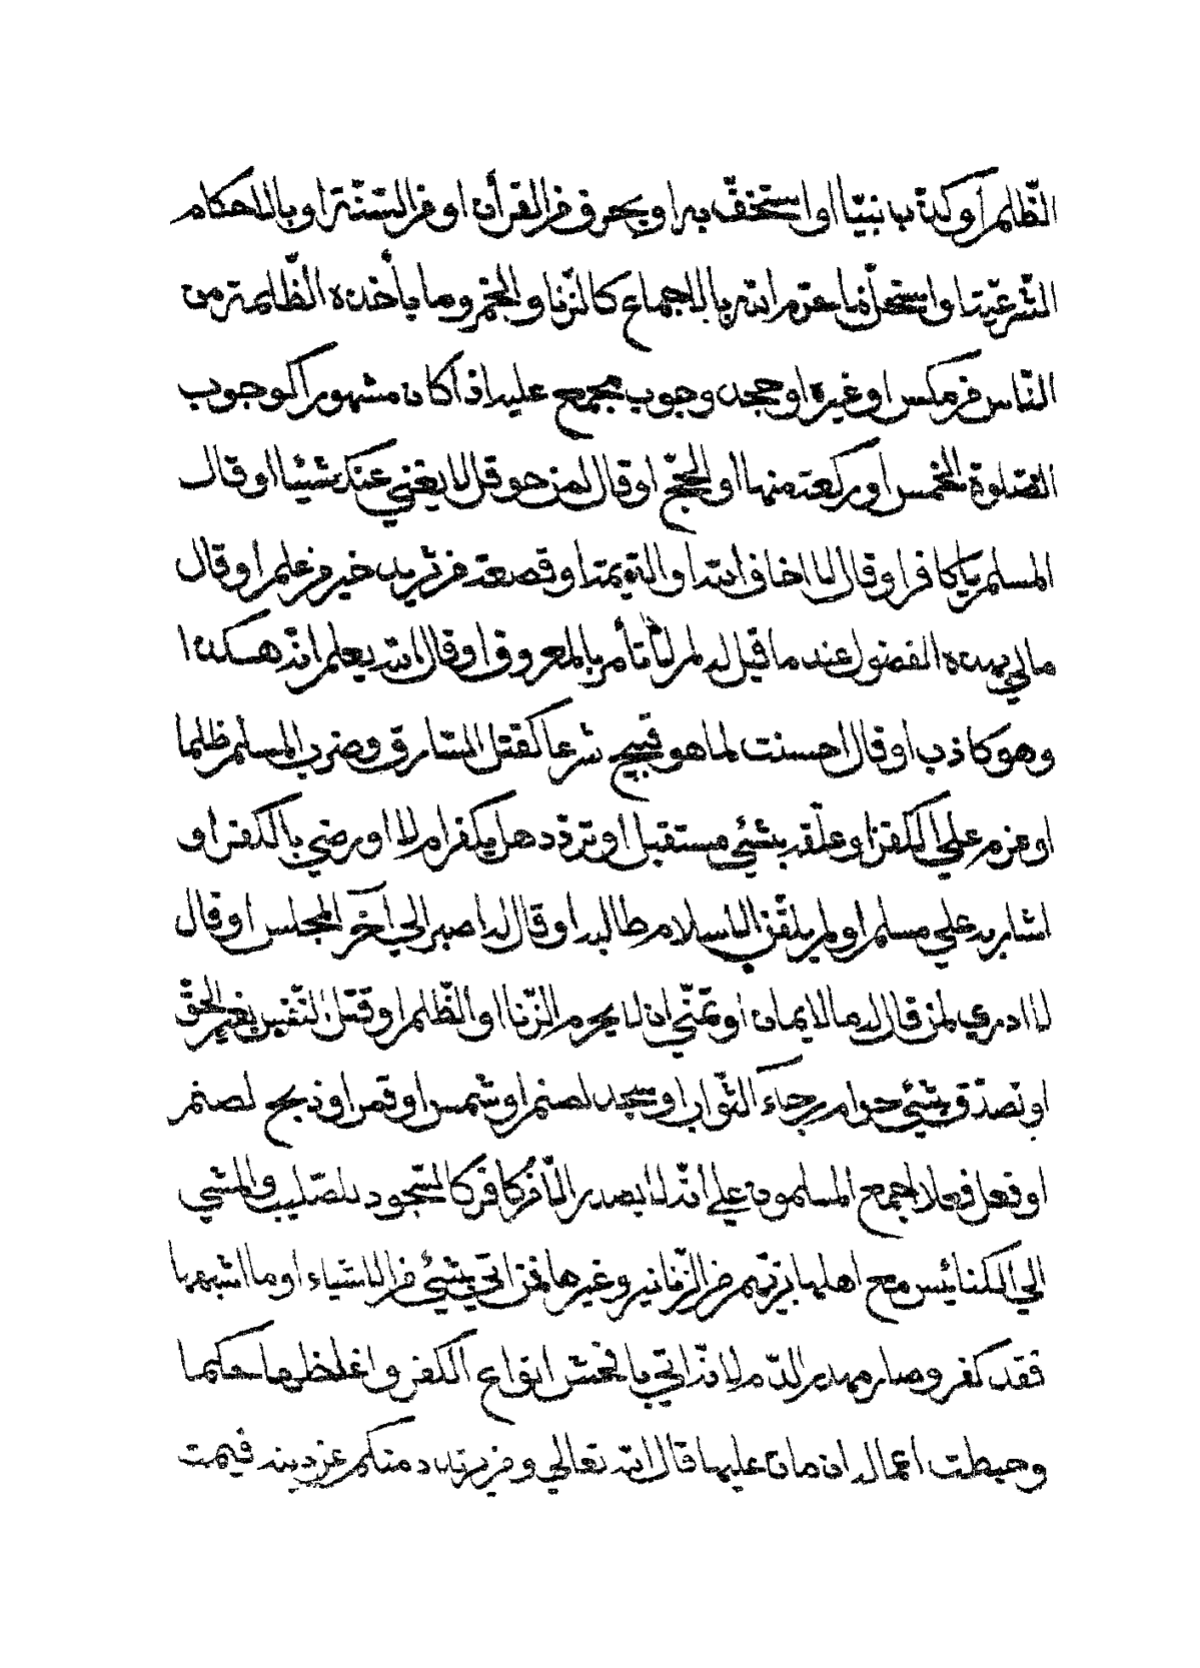 الظّالم أو كذّب نبيّا او استخفّ به او بحرف من القرأن او من السّنّة او بالاحكام
الشّرعيّة او استحلّ ما حرّم الله بالاجماع كالزّنا والخمر وما يأخذه الظّالمة من
النّاس من مكس او غيره او جحد وجوب مجمع عليه اذا كان مشهورا كوجوب
الصّلوة الخمس او ركعة منها او الحجّ او قال لمن حوقل لا يغني عنك شيئا او قال
المسلم يا كافر او قال لا اخاف الله او القيمة او قصعة من ثريد خير من علم او قال
مالي بهذه الفضول عند ما قيل له لم لا تأمر بالمعروف او قال الله يعلم انّه هكذا
وهو كاذب او قال احسنت لما هو قبيح شرعا كقتل السّارق وضرب المسلم ظلما
او عزم علي الكفر او علّقه بشئي مستقبل او تردّد هل يكفر ام لا او رضي بالكفر او
اشار به علي مسلم او لم يلقّن الاسلام طالبه او قال له اصبر الي آخر المجلس او قال
لا ادري لمن قال له ما الايمان او تمنّي ان لا يحرم الزّنا او الظّالم او قتل النّفس بغير الحقّ
او تصدّق بشئي حرام برجاء الثّواب او سجد لصنم او شمس او قمر او ذبح لصنم
او فعل فعلا اجمع المسلمون علي انّه لا يصدر الّا من كافر كالسّجود للصّليب والمشي
الي الكنائس مع اهلها بزيّهم من الزّنانير وغيرها فمن اتي بشئي من الاشياء او ما اشبهها
فقد كفر وصار مهدر الدّم لانّه اتي بافحش انواع الكفر واغلظها حكما
وحبطت اعماله ان مات عليها قال الله تعالي ومن يرتدد منكم عن دينه فيمت